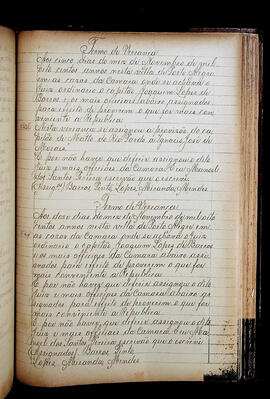 Termo de Vereança
Aos cinco dias do mez de Novembro de mil
oito centos annos nesta villa de Porto Alegre
em as cazas da Camara onde se achando o
Juiz ordinario o capitão Joaquim Lopes de
Barros e os mais officiaes abaixo assignados
para effeito de proverem o que for mais con
veniente a Republica
Nesta vereança se assignou a provisão de ca
pitão de Matto do Rio Pardo a Ignacio José de
Moraes
E por não haver que deferir assignou o dito
Juiz e mais officiaes da Camara Eu Manoel
dos Santos Pereira escrivão que o escrevi
Barros, Pinto, Lopes, Miranda, Mendes
Termo de Vereança
Aos doze dias do mez de Novembro de mil oito
centos annos nesta villa de Porto Alegre em
as cazas da Camara onde se achando o Juiz
ordinario o capitão Joaquim Lopes de Barros
e os mais officiaes da Camara abaixo assi
gnados para effeito de proverem o que for
mais conveniente a Republica
E por não haver que deferir assignou o dito
Juiz e mais officiaes da Camara abaixo as
signados para effeito de proverem o que for
mais conveniente a Republica.
E por não haver que deferir assignou o dito
Juiz e mais officiaes da Camara. Eu Ma
noel dos Santos Pereira escrivão que o escrevi
(Assignados) Barros, Pinto,
Lopes, Miranda, Mendes